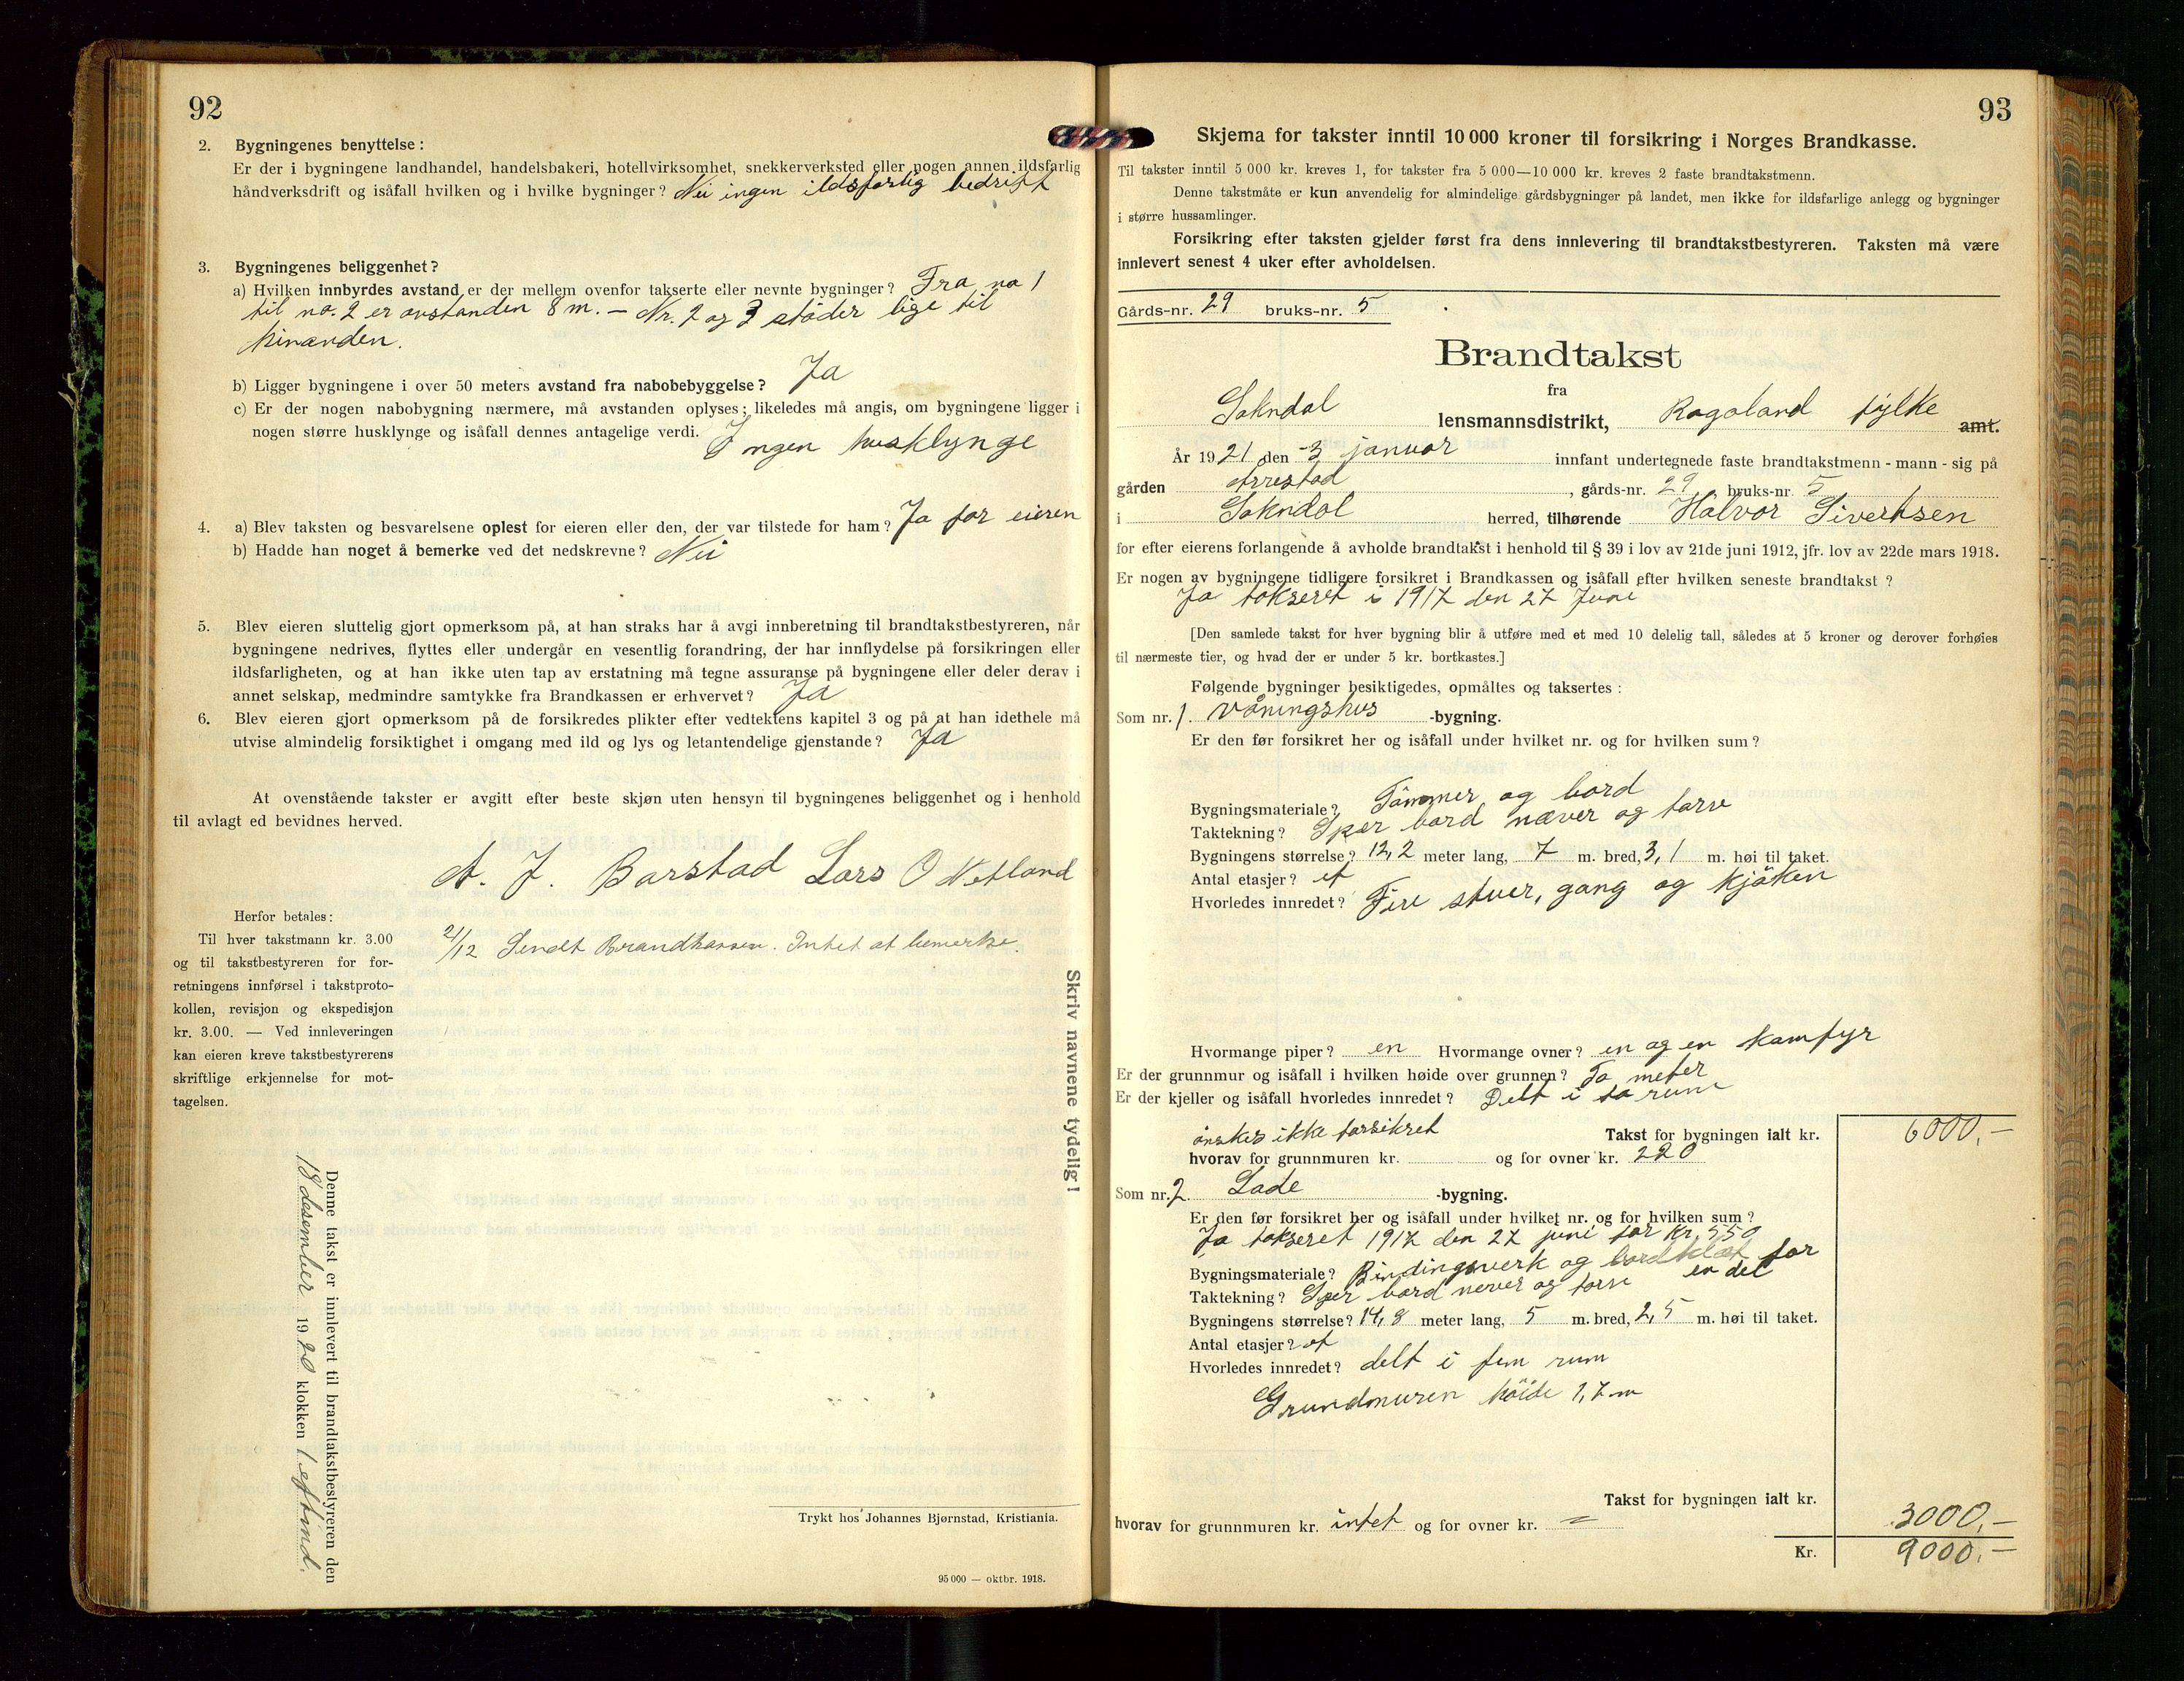 92
2. Bygningenes benyttelse:
Er der i bygningene landhandel, handelsbakeri, hotellvirksomhet, snekkerverksted eller nogen annen ildsfarlig
håndverksdrift og isåfall hvilken og i hvilke bygninger? Nei ingen ildsfarlig bedrift
3. Bygningenes beliggenhet?
a) Hvilken innbyrdes avstand er der mellem ovenfor takserte eller nevnte bygninger? Fra no 1
til no. 2 er avstanden 8 m. – Nr. 2 og 3 støder lige til
hinanden.
b) Ligger bygningene i over 50 meters avstand fra nabobebyggelse? Ja
c) Er der nogen nabobygning nærmere, må avstanden oplyses; likeledes må angis, om bygningene ligger i
nogen større husklynge og isåfall dennes antagelige verdi. Ingen husklynge
4. a) Blev taksten og besvarelsene oplest for eieren eller den, der var tilstede for ham? Ja for eieren
b) Hadde han noget å bemerke ved det nedskrevne? Nei
5. Blev eieren sluttelig gjort opmerksom på, at han straks har å avgi innberetning til brandtakstbestyreren, når
bygningene nedrives, flyttes eller undergår en vesentlig forandring, der har innflydelse på forsikringen eller
ildsfarligheten, og at han ikke uten tap av erstatning må tegne assuranse på bygningene eller deler derav i
annet selskap, medmindre samtykke fra Brandkassen er erhvervet? Ja
6. Blev eieren gjort opmerksom på de forsikredes plikter efter vedtektens kapitel 3 og på at han idethele må
utvise almindelig forsiktighet i omgang med ild og lys og letantendelige gjenstande? Ja
At ovenstående takster er avgitt efter beste skjøn uten hensyn til bygningenes beliggenhet og i henhold
til avlagt ed bevidnes herved.
A. J. Barstad Lars O Netland
Herfor betales:
Til hver takstmann kr. 3.00
og til takstbestyreren for for-
retningens innførsel i takstproto-
kollen, revisjon og ekspedisjon
kr. 3.00. — Ved innleveringen
kan eieren kreve takstbestyrerens
skriftlige erkjennelse for mot-
tagelsen.
21/12 Sendt Brandkassen. Intet at bemerke.
Skriv navnene tydelig!
Denne takst er innlevert til brandtakstbestyreren den
18 desember 1920 klokken 1 eftmd.
Trykt hos Johannes Bjørnstad, Kristiania.
95 000 — oktbr. 1918.
93
Skjema for takster inntil 10 000 kroner til forsikring i Norges Brandkasse.
Til takster inntil 5 000 kr. kreves 1, for takster fra 5 000—10 000 kr. kreves 2 faste brandtakstmenn.
Denne takstmåte er kun anvendelig for almindelige gårdsbygninger på landet, men ikke for ildsfarlige anlegg og bygninger
i større hussamlinger.
Forsikring efter taksten gjelder først fra dens innlevering til brandtakstbestyreren. Taksten må være
innlevert senest 4 uker efter avholdelsen.
Gårds-nr. 29 bruks-nr. 5
Brandtakst
fra
Sokndal lensmannsdistrikt, Rogaland fylke amt.
År 1921 den 3 januar innfant undertegnede faste brandtakstmenn - mann - sig på
gården Årrestad, gårds-nr. 29 bruks-nr. 5
i Sokndal herred, tilhørende Halvor Sivertsen
for efter eierens forlangende å avholde brandtakst i henhold til § 39 i lov av 21de juni 1912, jfr. lov av 22de mars 1918.
Er nogen av bygningene tidligere forsikret i Brandkassen og isåfall efter hvilken seneste brandtakst?
Ja takseret i 1917 den 27 Juni
[Den samlede takst for hver bygning blir å utføre med et med 10 delelig tall, således at 5 kroner og derover forhøies
til nærmeste tier, og hvad der er under 5 kr. bortkastes.]
Følgende bygninger besiktigedes, opmåltes og taksertes:
Som nr. 1. våningshus -bygning.
Er den før forsikret her og isåfall under hvilket nr. og for hvilken sum?
Bygningsmateriale? Tømmer og bord
Taktekning? Sper bord næver og torv
Bygningens størrelse? 12,2 meter lang, 7 m. bred, 3,1 m. høi til taket.
Antal etasjer? et
Hvorledes innredet? Fire stuer, gang og kjøken
Hvormange piper? en Hvormange ovner? en og en komfyr
Er der grunnmur og isåfall i hvilken høide over grunnen? To meter
Er der kjeller og isåfall hvorledes innredet? Delt i to rum
ønskes ikke forsikret Takst for bygningen ialt kr. 6000,-
hvorav for grunnmuren kr. og for ovner kr. 220
Som nr. 2 Lade -bygning.
Er den før forsikret her og isåfall under hvilket nr. og for hvilken sum?
Ja takseret 1917 den 27 juni for Kr. 550
Bygningsmateriale? Bindingsverk og bordklæt for
en del
Taktekning? Sper bord never og torv
Bygningens størrelse? 14,8 meter lang, 5 m. bred, 2,5 m. høi til taket.
Antal etasjer? et
Hvorledes innredet? delt i fem rum
Grundmuren höide 1,7 m
Takst for bygningen ialt kr. 3000,-
hvorav for grunnmuren kr. intet og for ovner kr. =
Kr. 9000,-